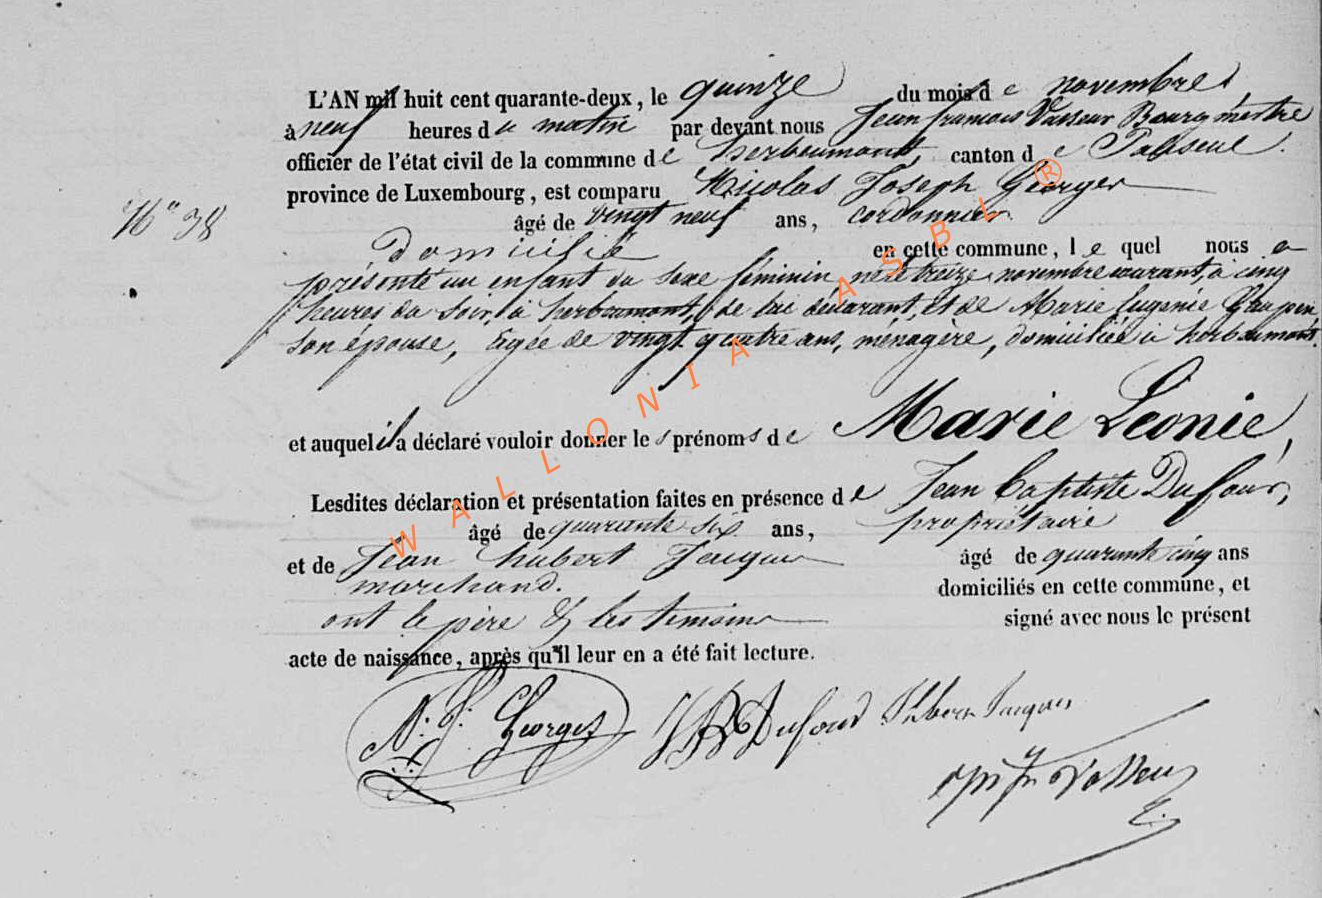 L'AN mil huit cent quarante-deux, le quinze du mois de novembre,
à neuf heures du matin par devant nous Jean françois Vasseur Bourgmestre
officier de l'état civil de la commune de herbeumont, canton de Paliseul.
province de Luxembourg, est comparu Nicolas Joseph Georges
N° 38
âgé de vingt neuf ans, cordonnier
domicilié en cette commune, lequel nous a
présenté un enfant du sexe féminin né le treize novembre courant, à cinq
heures du soir, à herbeumont, de lui déclarant, et de Marie Eugénie
son épouse, âgée de vingt quatre ans, ménagère, domiciliée à herbeumont.
et auquel il a déclaré vouloir donner les prénoms de Marie Léonie,
Lesdites déclaration et présentation faites en présence de Jean Baptiste Dufour,
âgé de quarante six ans, propriétaire
et de Jean hubert Jacques âgé de quarante cinq ans
marchand. domiciliés en cette commune, et
ont le père & les témoins signé avec nous le présent
acte de naissance, après qu'il leur en a été fait lecture.
N. J. Georges JB Dufour hubert Jacques
Vasseur
WALLONIA ASBL ®